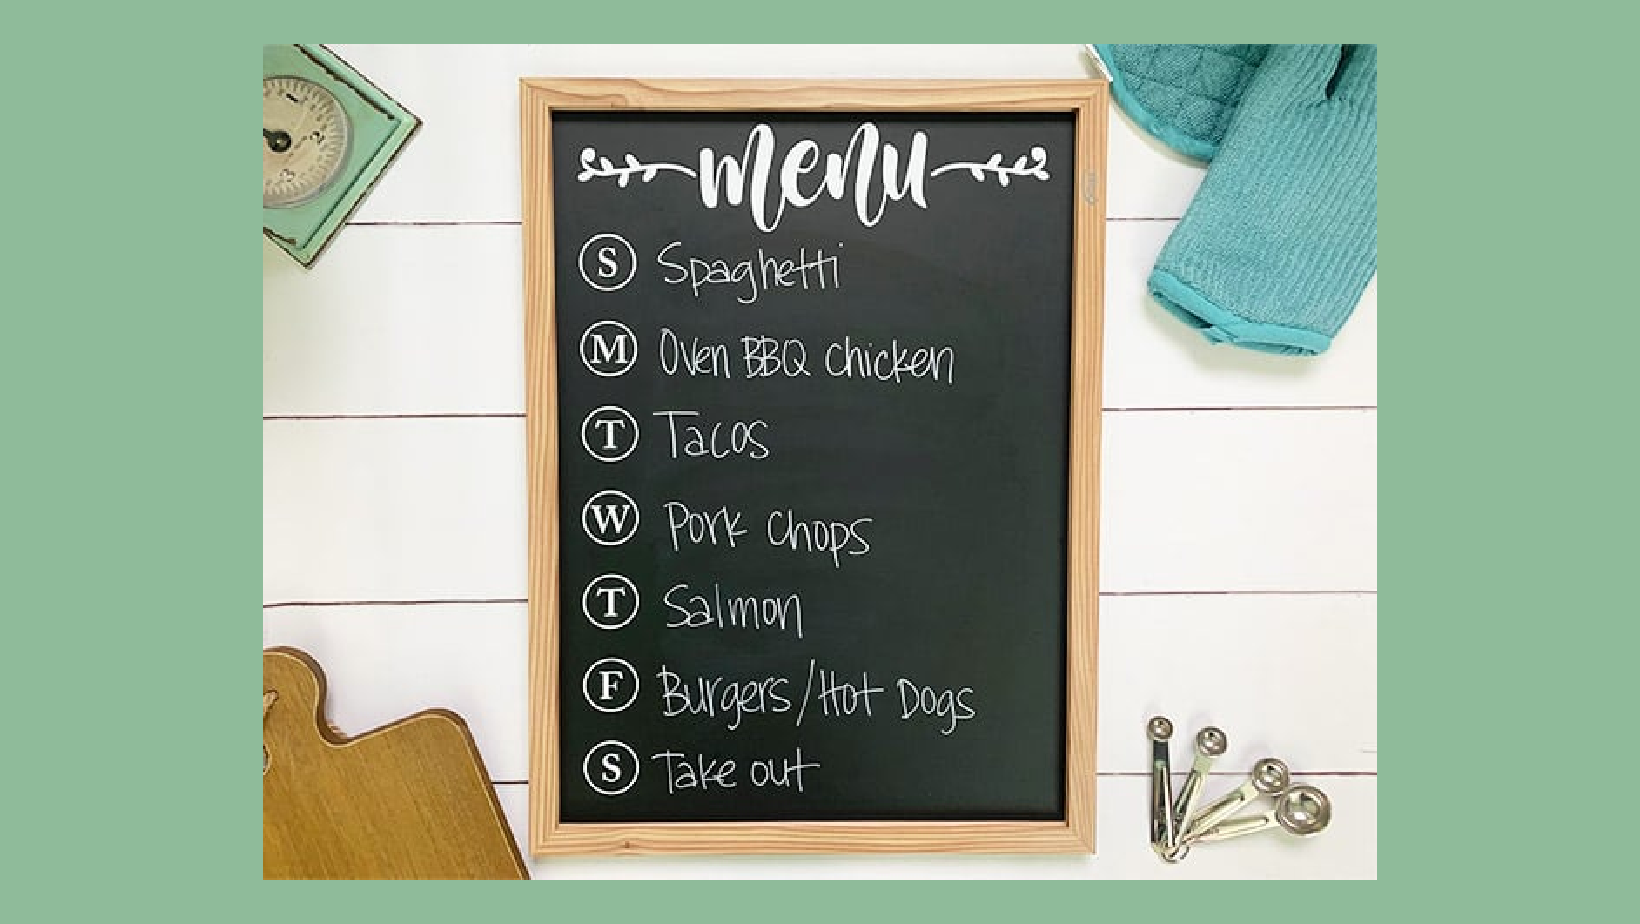 menu
S Spaghetti
M Oven BBQ Chicken
T Tacos
W Pork Chops
T Salmon
F Burgers/Hot Dogs
S Take out